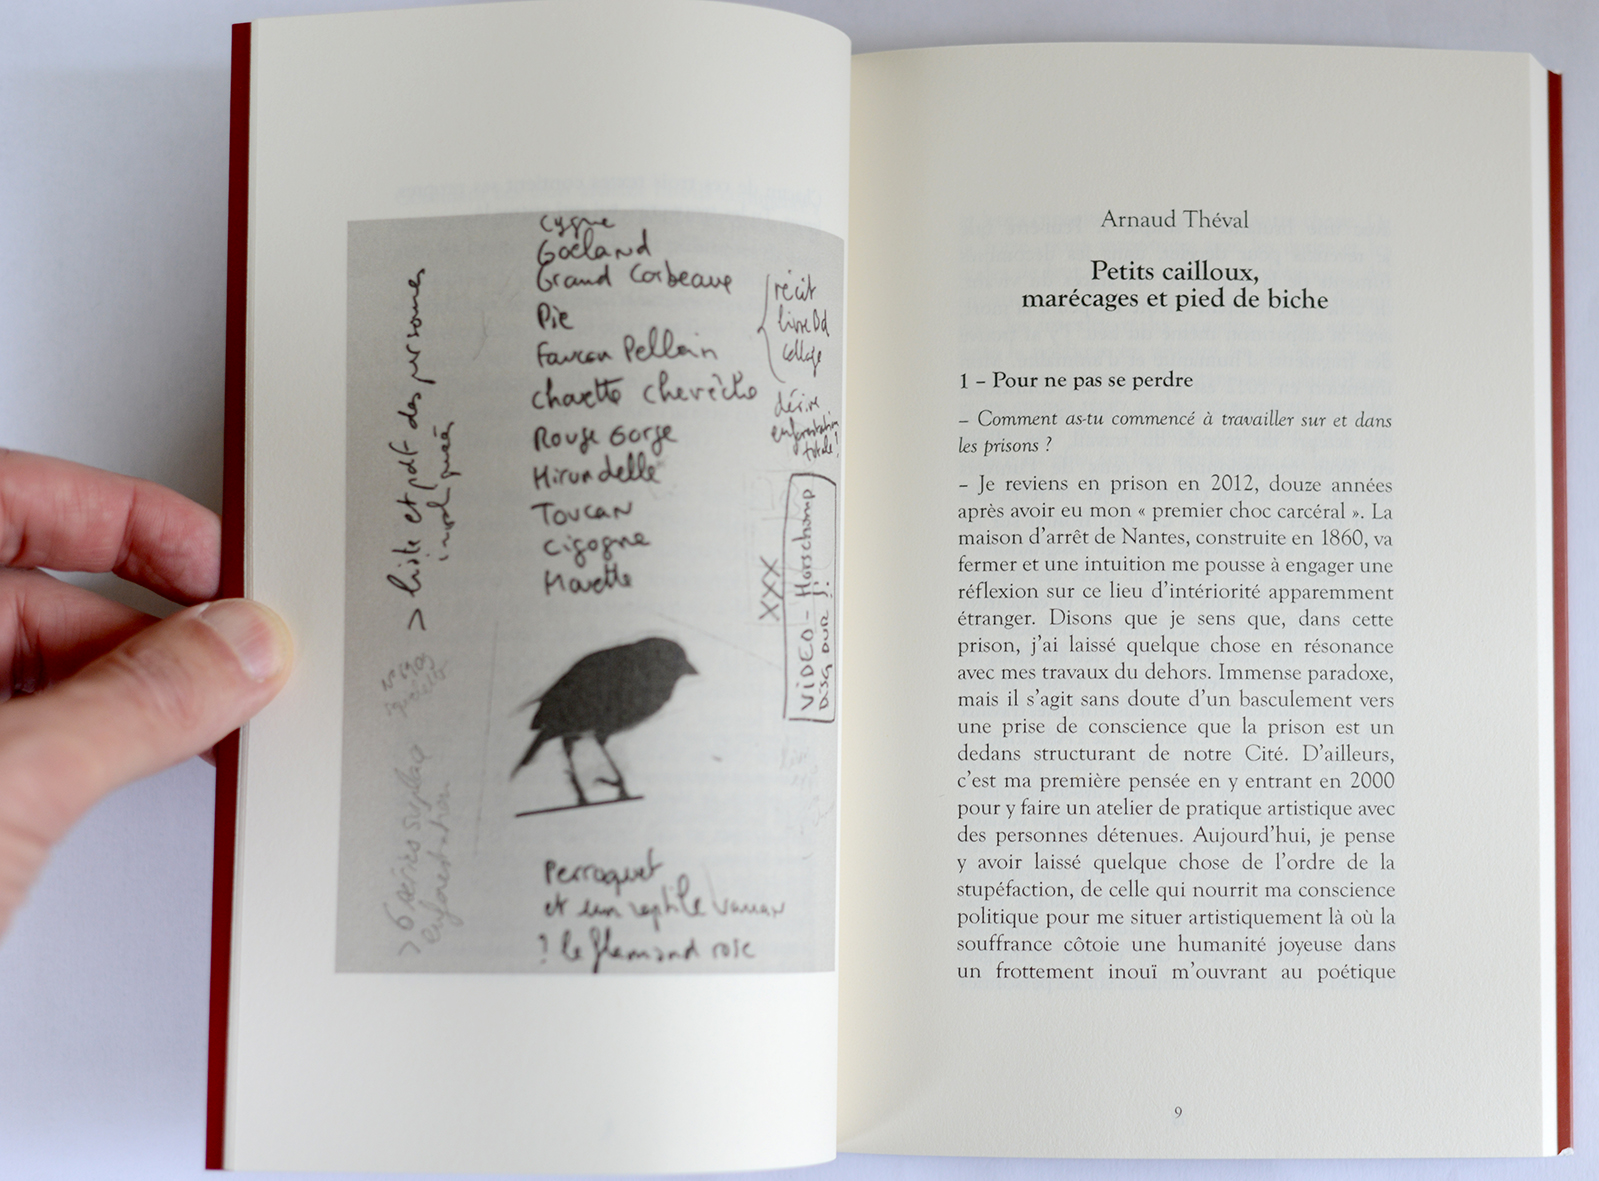 cygne
Goéland
Grand Corbeaux
Pie
Faucon Pellerin
chouette chevêche
Rouge Gorge
Hirundelle
Toucan
Cigogne
Mouette
Perroquet
et un reptile varan
? le flamand rose
récit
livre Dd
collage
dérive
enforestation
totale!
XXX
VIDEO - Horschamp
DISQ DUR
> liste et pdf des personnes
impliquées
> 6 séries
enforestation
Arnaud Théval
Petits cailloux,
marécages et pied de biche
1 – Pour ne pas se perdre
– Comment as-tu commencé à travailler sur et dans
les prisons ?
– Je reviens en prison en 2012, douze années
après avoir eu mon « premier choc carcéral ». La
maison d’arrêt de Nantes, construite en 1860, va
fermer et une intuition me pousse à engager une
réflexion sur ce lieu d’intériorité apparemment
étranger. Disons que je sens que, dans cette
prison, j’ai laissé quelque chose en résonance
avec mes travaux du dehors. Immense paradoxe,
mais il s’agit sans doute d’un basculement vers
une prise de conscience que la prison est un
dedans structurant de notre Cité. D’ailleurs,
c’est ma première pensée en y entrant en 2000
pour y faire un atelier de pratique artistique avec
des personnes détenues. Aujourd’hui, je pense
y avoir laissé quelque chose de l’ordre de la
stupéfaction, de celle qui nourrit ma conscience
politique pour me situer artistiquement là où la
souffrance côtoie une humanité joyeuse dans
un frottement inouï m’ouvrant au poétique
9